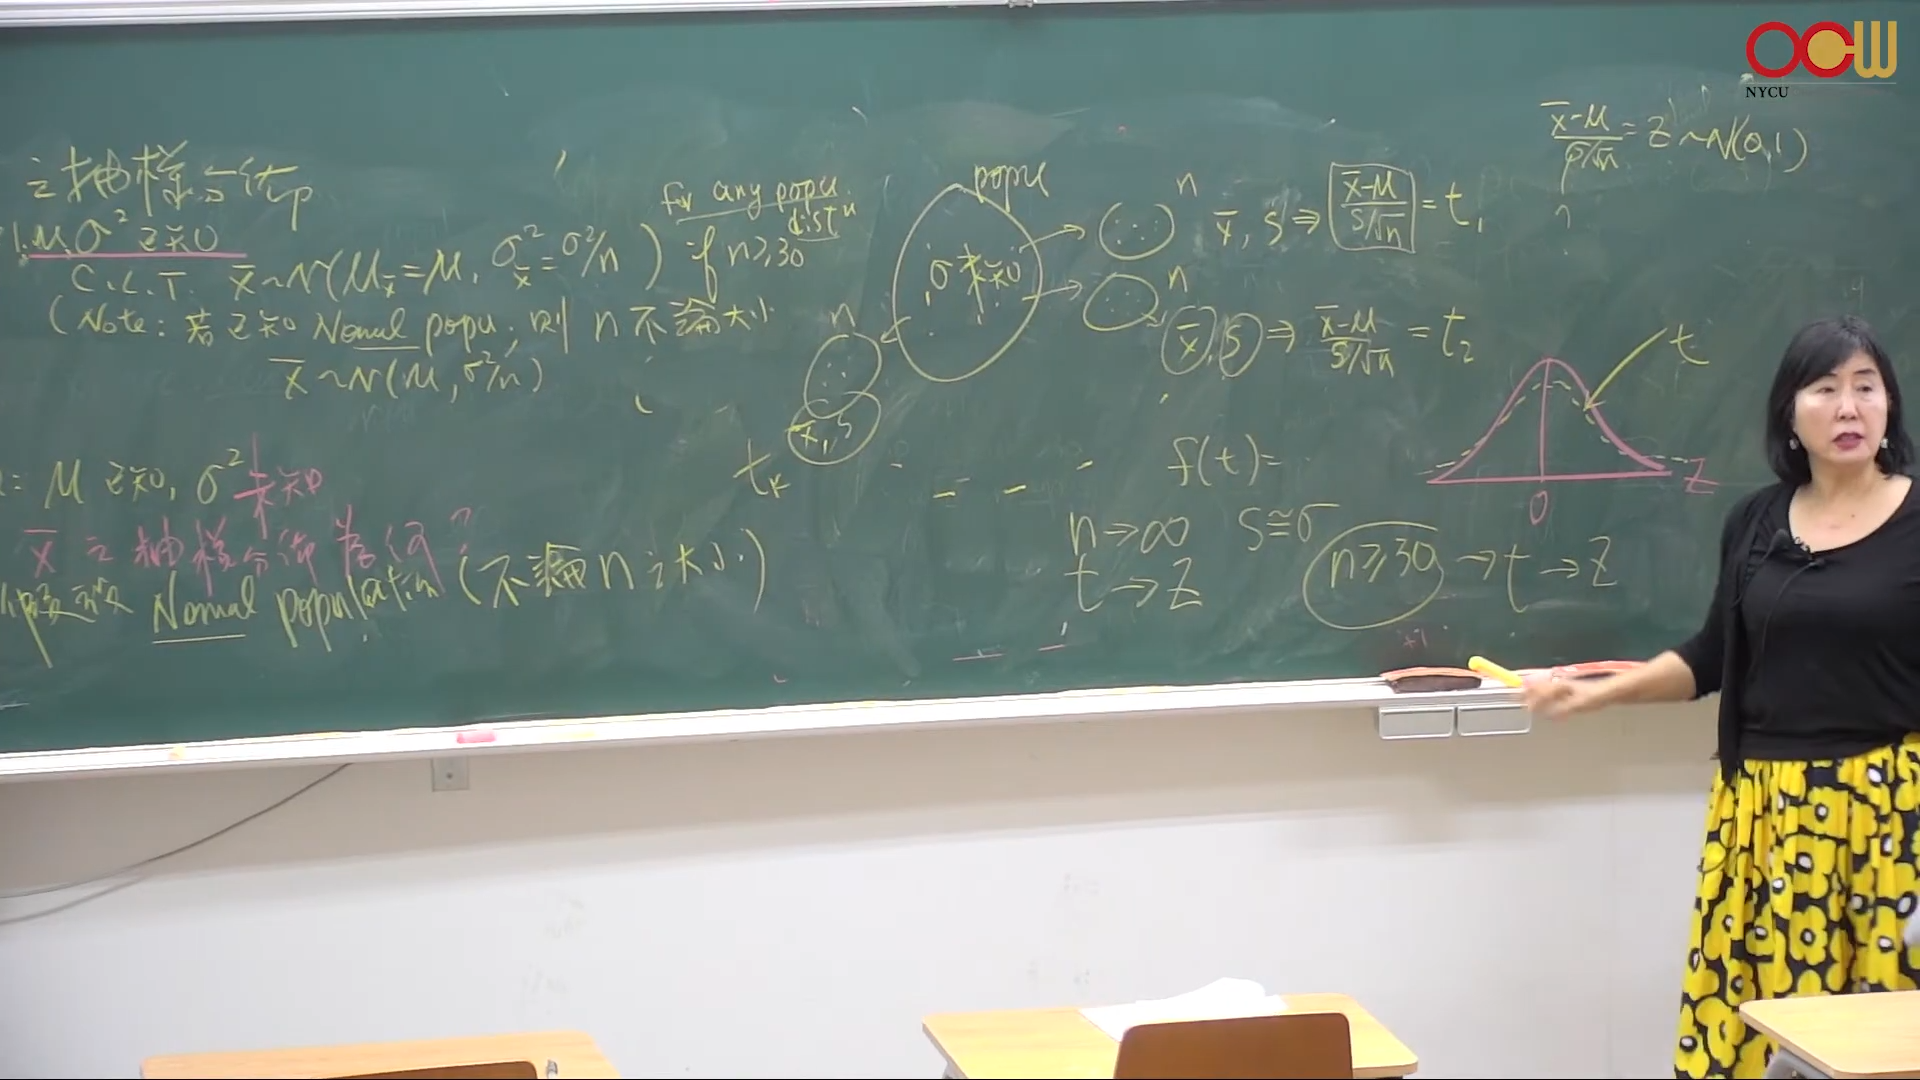 之抽樣分佈
1. μ, σ² 已知
C.L.T. x̄~N(μx̄=μ, σ²x̄=σ²/n) if n≥30
for any popu. distⁿ
(Note: 若已知 Normal popu, 則 n 不論大小
x̄~N(μ, σ²/n)
: μ 已知, σ² 未知
x̄ 之抽樣分佈為何?
假設 Normal population (不論n之大小)
popu
σ未知
n
x̄, s ⇒ (x̄-μ)/(s/√n) = t₁
n
x̄, s ⇒ (x̄-μ)/(s/√n) = t₂
n
x̄, s
tₖ
f(t)=
n→∞ s≅σ
t→Z
n≥30 → t → Z
(x̄-μ)/(σ/√n) = Z ~ N(0,1)
t
0
Z
OCW
NYCU